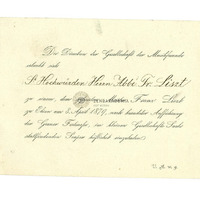 Die Direction der Gesellschaft der Musikfreunde
erlaubt sich
Sr Hochwürden Herrn Abbé Fr. Liszt
zu einem, dem Meister Franz Liszt
zu Ehren am 8. April 1879, nach beendeter Aufführung
der Graner Festmesse, im kleinen Gesellschafts-Saale
stattfindenden Souper höflichst einzuladen.